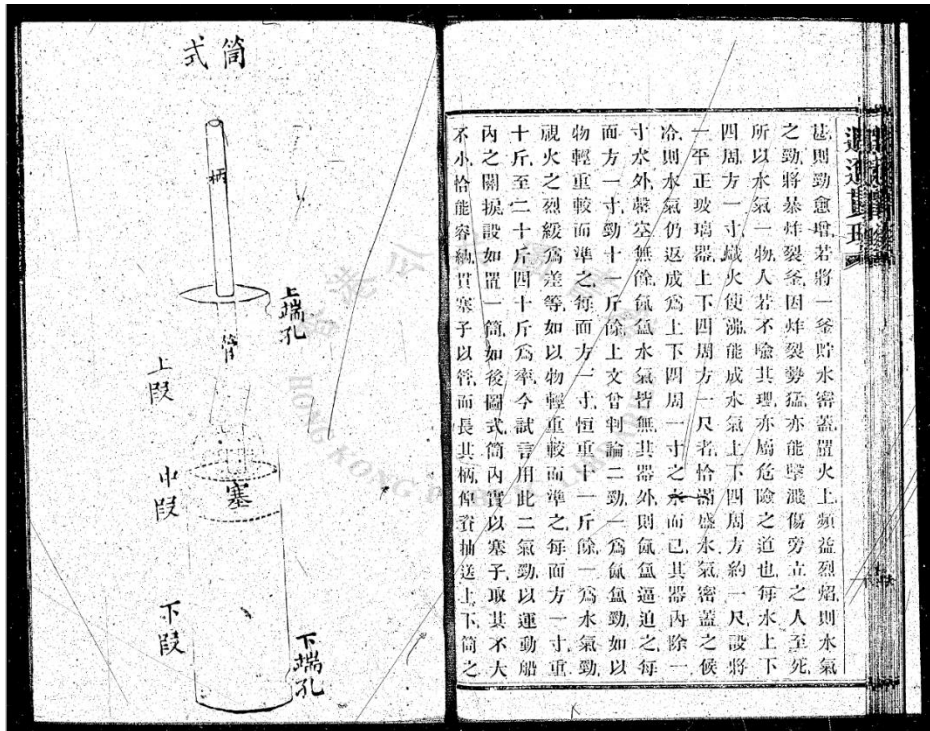 遐邇貫珍
甚則勁愈增,若將一釜貯水密蓋,置火上,頻益烈焰,則水氣
之勁,將暴炸裂釜,因炸裂勢猛,亦能擊濺傷旁立之人至死,
所以水氣一物,人若不喻其理,亦屬危險之道也,每水上下
四周方一寸,熾火使沸,能成水氣上下四周方約一尺,設將
一平正玻璃器,上下四周方一尺者,恰滿盛水氣,密蓋之候
冷,則水氣仍返成爲上下四周一寸之水而已,其器內除一
寸水外,罄空無餘,氤氳水氣皆無,其器外,則氤氳逼迫之,每
面方一寸,勁十一斤餘,上文曾判論二勁,一爲氤氳勁,如以
物輕重較而準之,每面方一寸,恒重十一斤餘,一爲水氣勁,
視火之烈緩爲差等,如以物輕重較而準之,每面方一寸,重
十斤,至二十斤四十斤爲率,今試言用此二氣勁,以運動船
內之關捩,設如置一筒,如後圖式,筒內實以塞子,取其不大
不小,恰能容納,貫塞子以管,而長其柄,俾資抽送上下,筒之
筒式
柄
上端孔
管
上段
中段
塞
下段
下端孔
HONG KONG